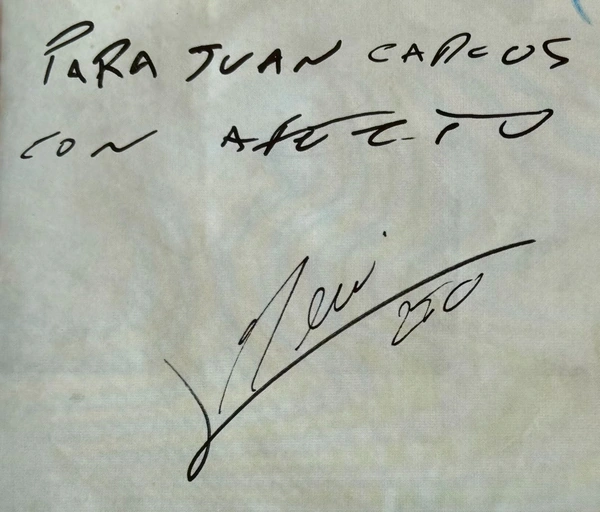 PARA JUAN CARLOS
CON AFECTO